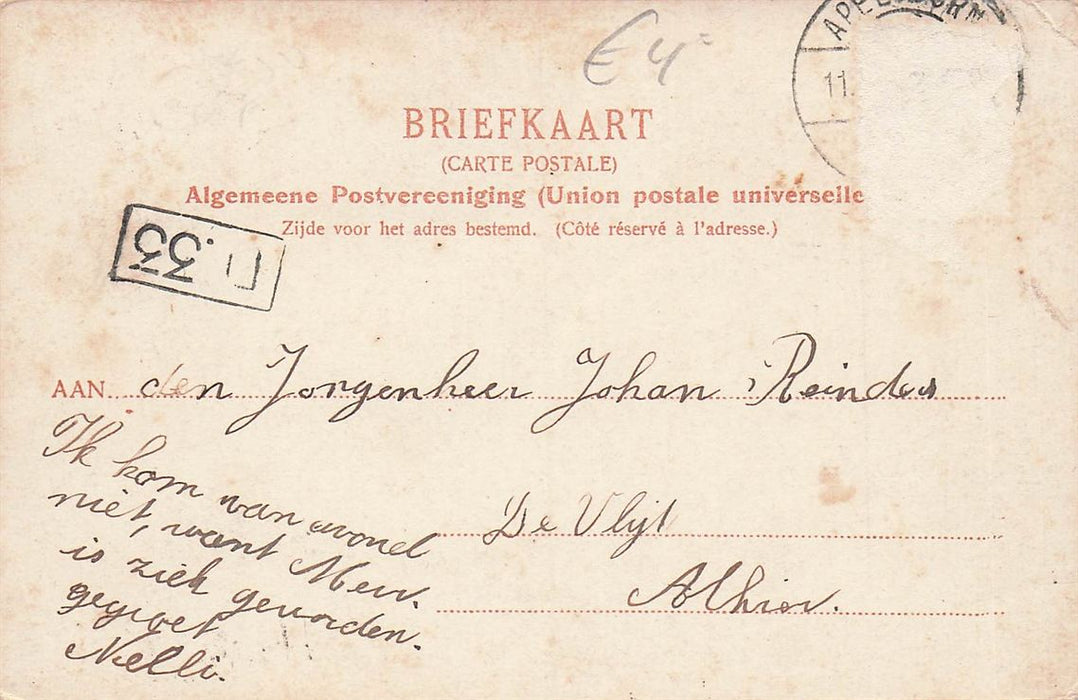 € 4=
11.
BRIEFKAART
(CARTE POSTALE)
Algemeene Postvereeniging (Union postale universelle
Zijde voor het adres bestemd. (Côté réservé à l'adresse.)
33
AAN den Jongenheer Johan Reinders
De Vlijt
Alhier.
Ik kom van avond
niet, want Mevr.
is ziek geworden.
gegroet
Nelli.